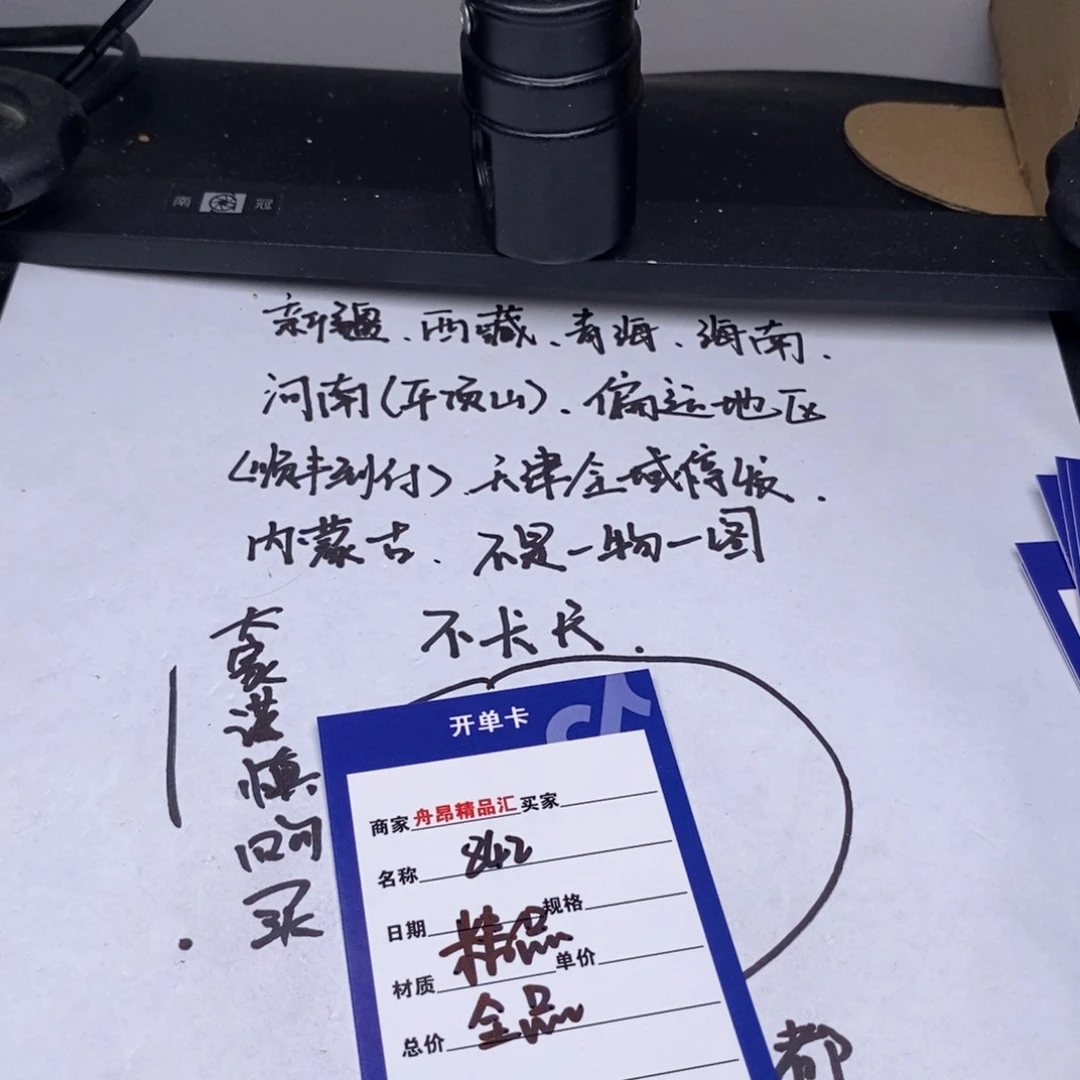 南 冠
新疆、西藏、青海、海南.
河南(平顶山)、偏远地区
<顺丰到付>天津全域停发.
内蒙古. 不是一物一图
不卡尺.
大家谨慎购买
开单卡
商家 舟昂精品汇 买家
名称 842
日期 规格
精品
材质 单价
全品
总价
都